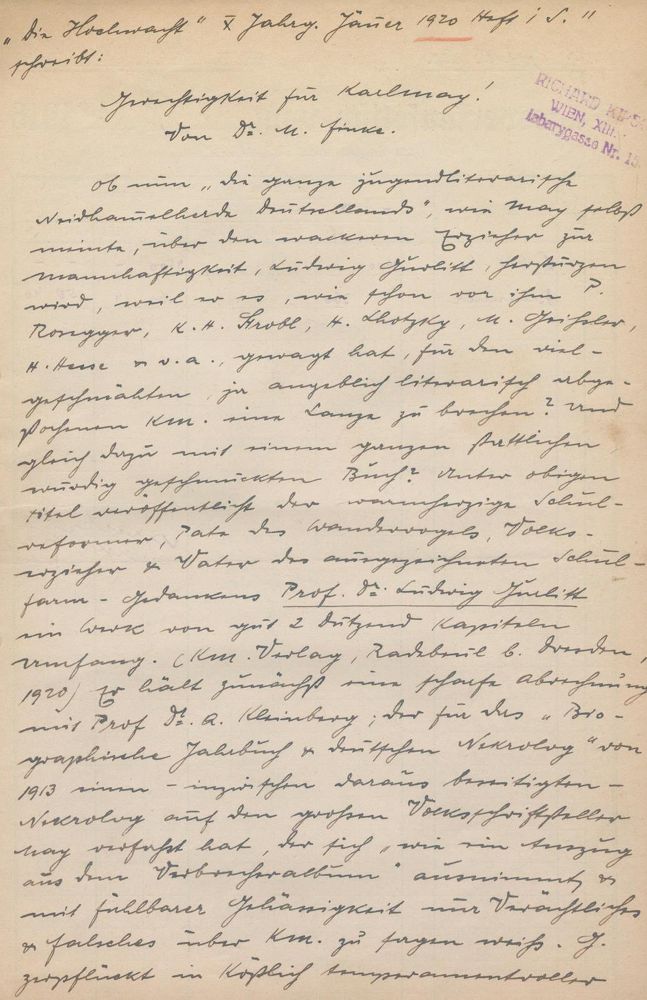 „Die Hochwacht" X Jahrg. Jäner 1920 Heft 1 S. 11
schreibt:
RICHARD
WIEN, XIII.
Gerechtigkeit für Karl May!
Von Dr. M. Finke.
Ob nun „die ganze jugendliterarische
Neidhammelherde Deutschlands", wie May selbst
meinte, über den wackeren Erzieher zur
Mannhaftigkeit, Ludwig Gurlitt, herstürzen
wird, weil er es, wie schon vor ihm P.
Rosegger, K. H. Strobl, H. Lhotzky, M. Geißler,
H. Hesse u. v. a., gewagt hat, für den viel-
geschmähten, ja angeblich literarisch abge-
stochenen KM. eine Lanze zu brechen? Und
gleich dazu mit einem ganzen stattlichen,
würdig geschmückten Buch? Unter obigem
Titel veröffentlicht der warmherzige Schul-
reformer, Pate des Wandervogels, Volks-
erzieher & Vater des ausgezeichneten Schul-
farm-Gedankens Prof. Dr. Ludwig Gurlitt
ein Werk von gut 2 Dutzend Kapiteln
Umfang. (KM. Verlag, Radebeul b. Dresden,
1920) Er hält zunächst eine scharfe Abrechnung
mit Prof Dr. A. Kleinberg, der für das „Bio-
graphische Jahrbuch & deutschen Nekrolog" von
1913 einen - inzwischen daraus beseitigten -
Nekrolog auf den großen Volksschriftsteller
May verfaßt hat, der sich „wie ein Auszug
aus dem Verbrecheralbum" ausnimmt &
mit fühlbarer Gehässigkeit nur Verächtliches
& falsches über KM. zu sagen weiß. G.
zerpflückt in köstlich temperamentvoller